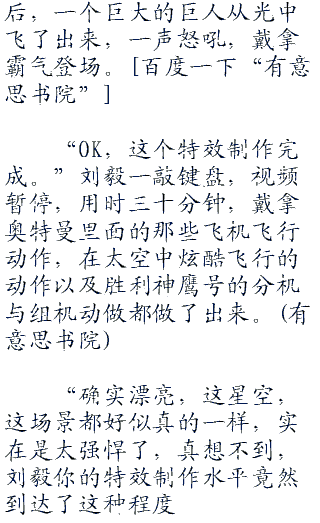 后，一个巨大的巨人从光中
飞了出来，一声怒吼，戴拿
霸气登场。[百度一下“有意
思书院”]
“OK，这个特效制作完
成。”刘毅一敲键盘，视频
暂停，用时三十分钟，戴拿
奥特曼里面的那些飞机飞行
动作，在太空中炫酷飞行的
动作以及胜利神鹰号的分机
与组机动做都做了出来。(有
意思书院)
“确实漂亮，这星空，
这场景都好似真的一样，实
在是太强悍了，真想不到，
刘毅你的特效制作水平竟然
到达了这种程度